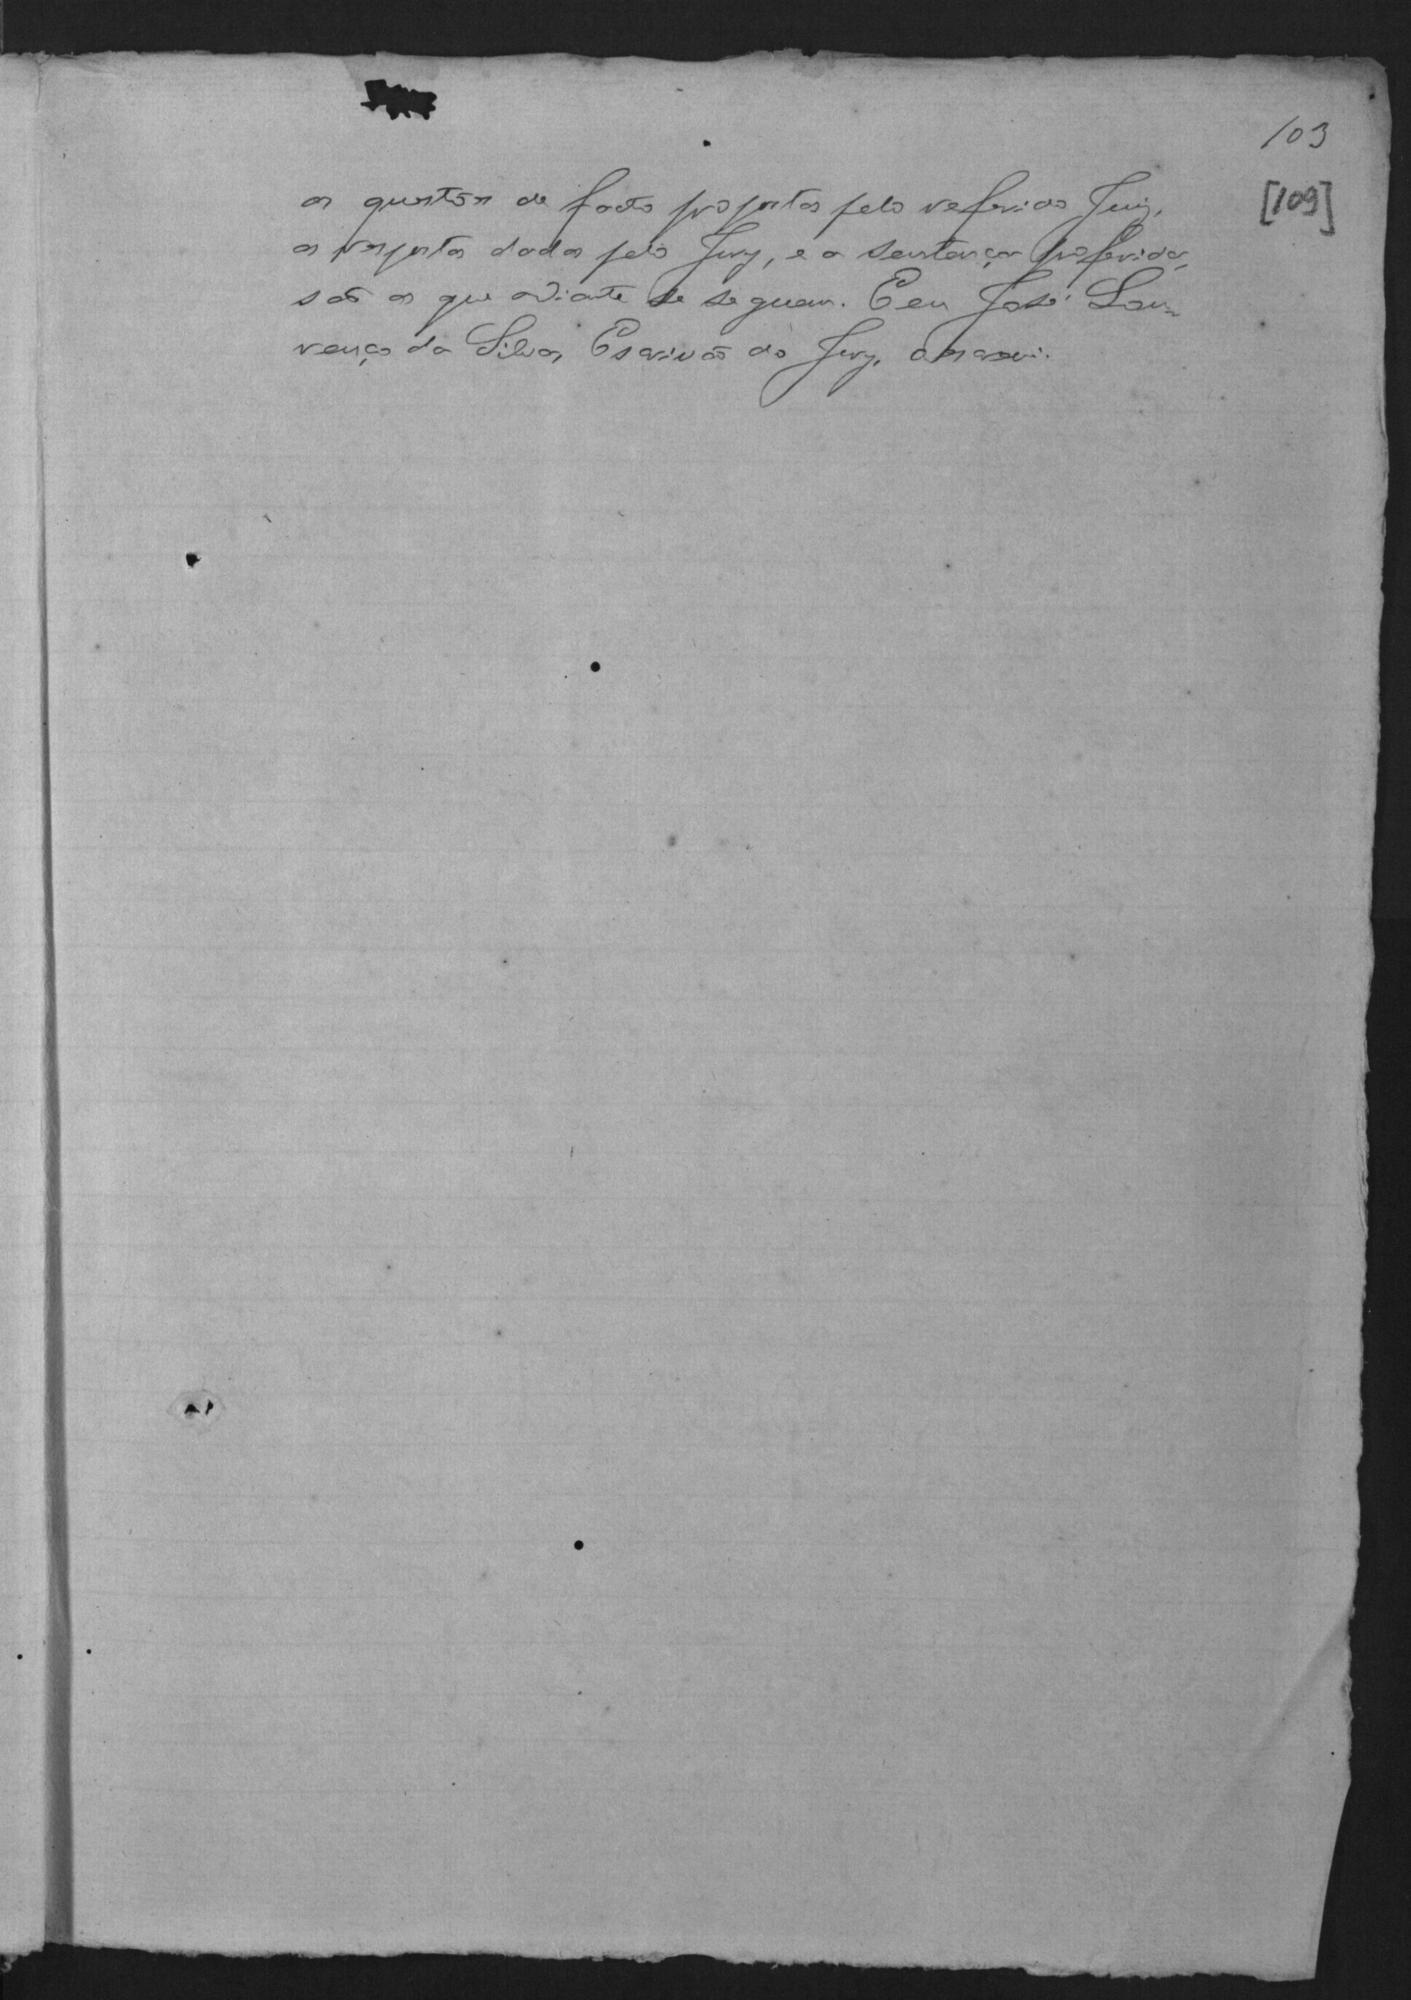 103
[109]
as questões de facto propostas pelo referido Juiz,
as respostas dadas pelo Jury, e a sentença proferida,
são as que adiante se seguem. E eu José Lou-
renço da Silva, Escrivão do Jury, o escrevi.